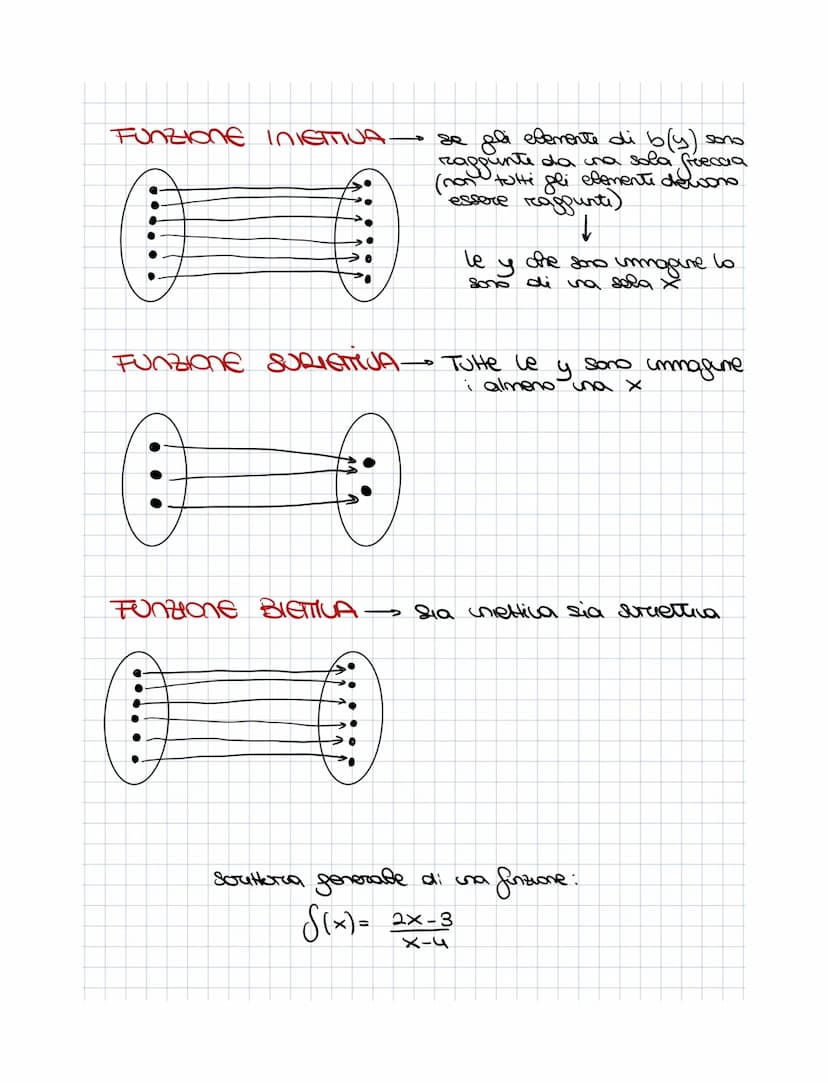 FUNZIONE INIETTIVA → se gli elementi di b(y) sono
raggiunti da una sola freccia
(non tutti gli elementi devono
essere raggiunti)
↓
le y che sono immagine lo
sono di una sola x
FUNZIONE SURIETTIVA → Tutte le y sono immagine
i almeno una x
FUNZIONE BIETTIVA → sia iniettiva sia suriettiva
scrittura generale di una funzione:
f(x) = 2x-3
x-4